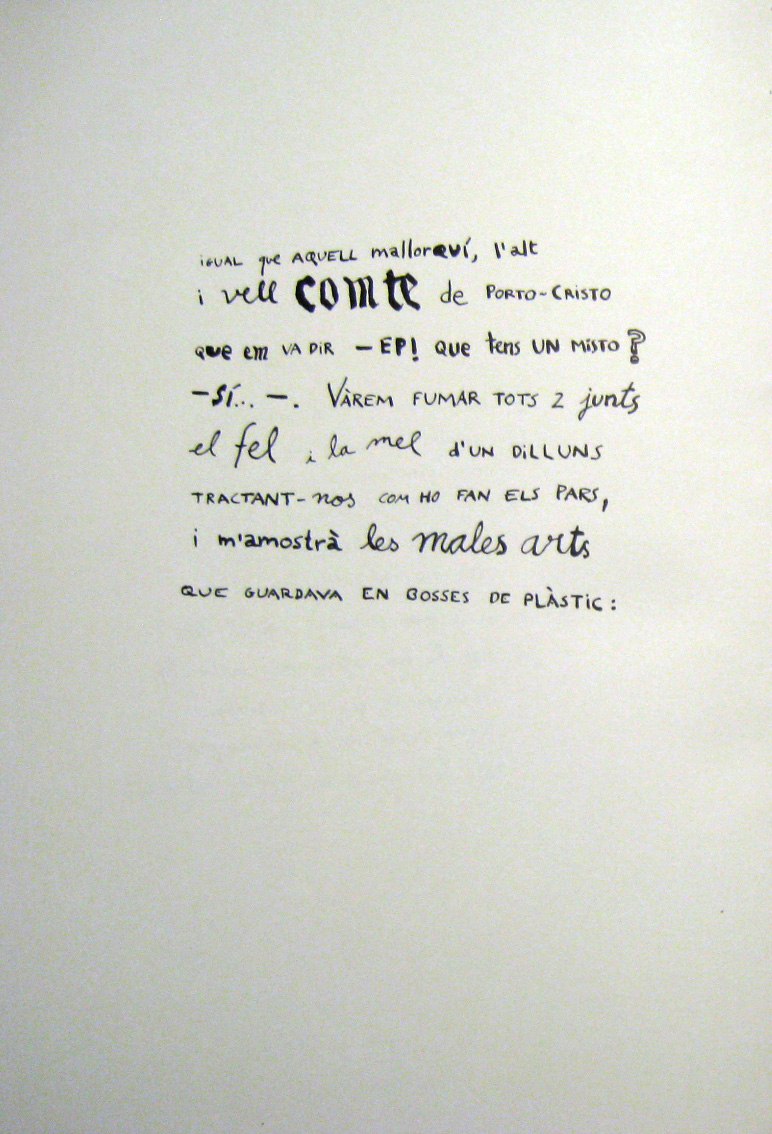 iGUAL que AQUELL mallorquí, l'alt
i vell comte de PORTO-CRISTO
que em VA DiR — EP! que tens UN MiSTO?
—Sí... —. VÀREM FUMAR TOTS 2 junts
el fel i la mel d'UN DiLLUNS
TRACTANT-nos COM HO FAN ELS PARS,
i m'amostrà les males arts
QUE GUARDAVA EN BOSSES DE PLÀSTiC: